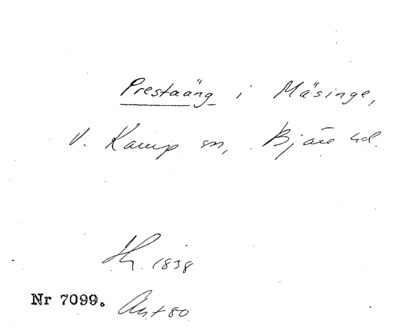 Prestaäng i Mäsinge,
V. Karup sn, Bjäre hd.
1838
Nr 7099.